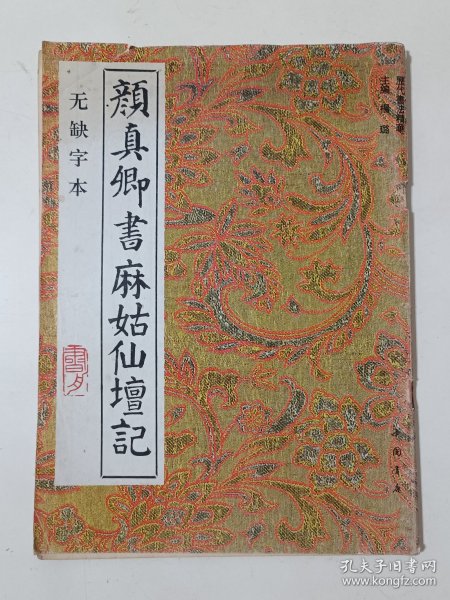 顔真卿書麻姑仙壇記
无缺字本
歷代書法精華
主編 楊璐
中国書店
孔夫子旧书网
www.kongfz.com